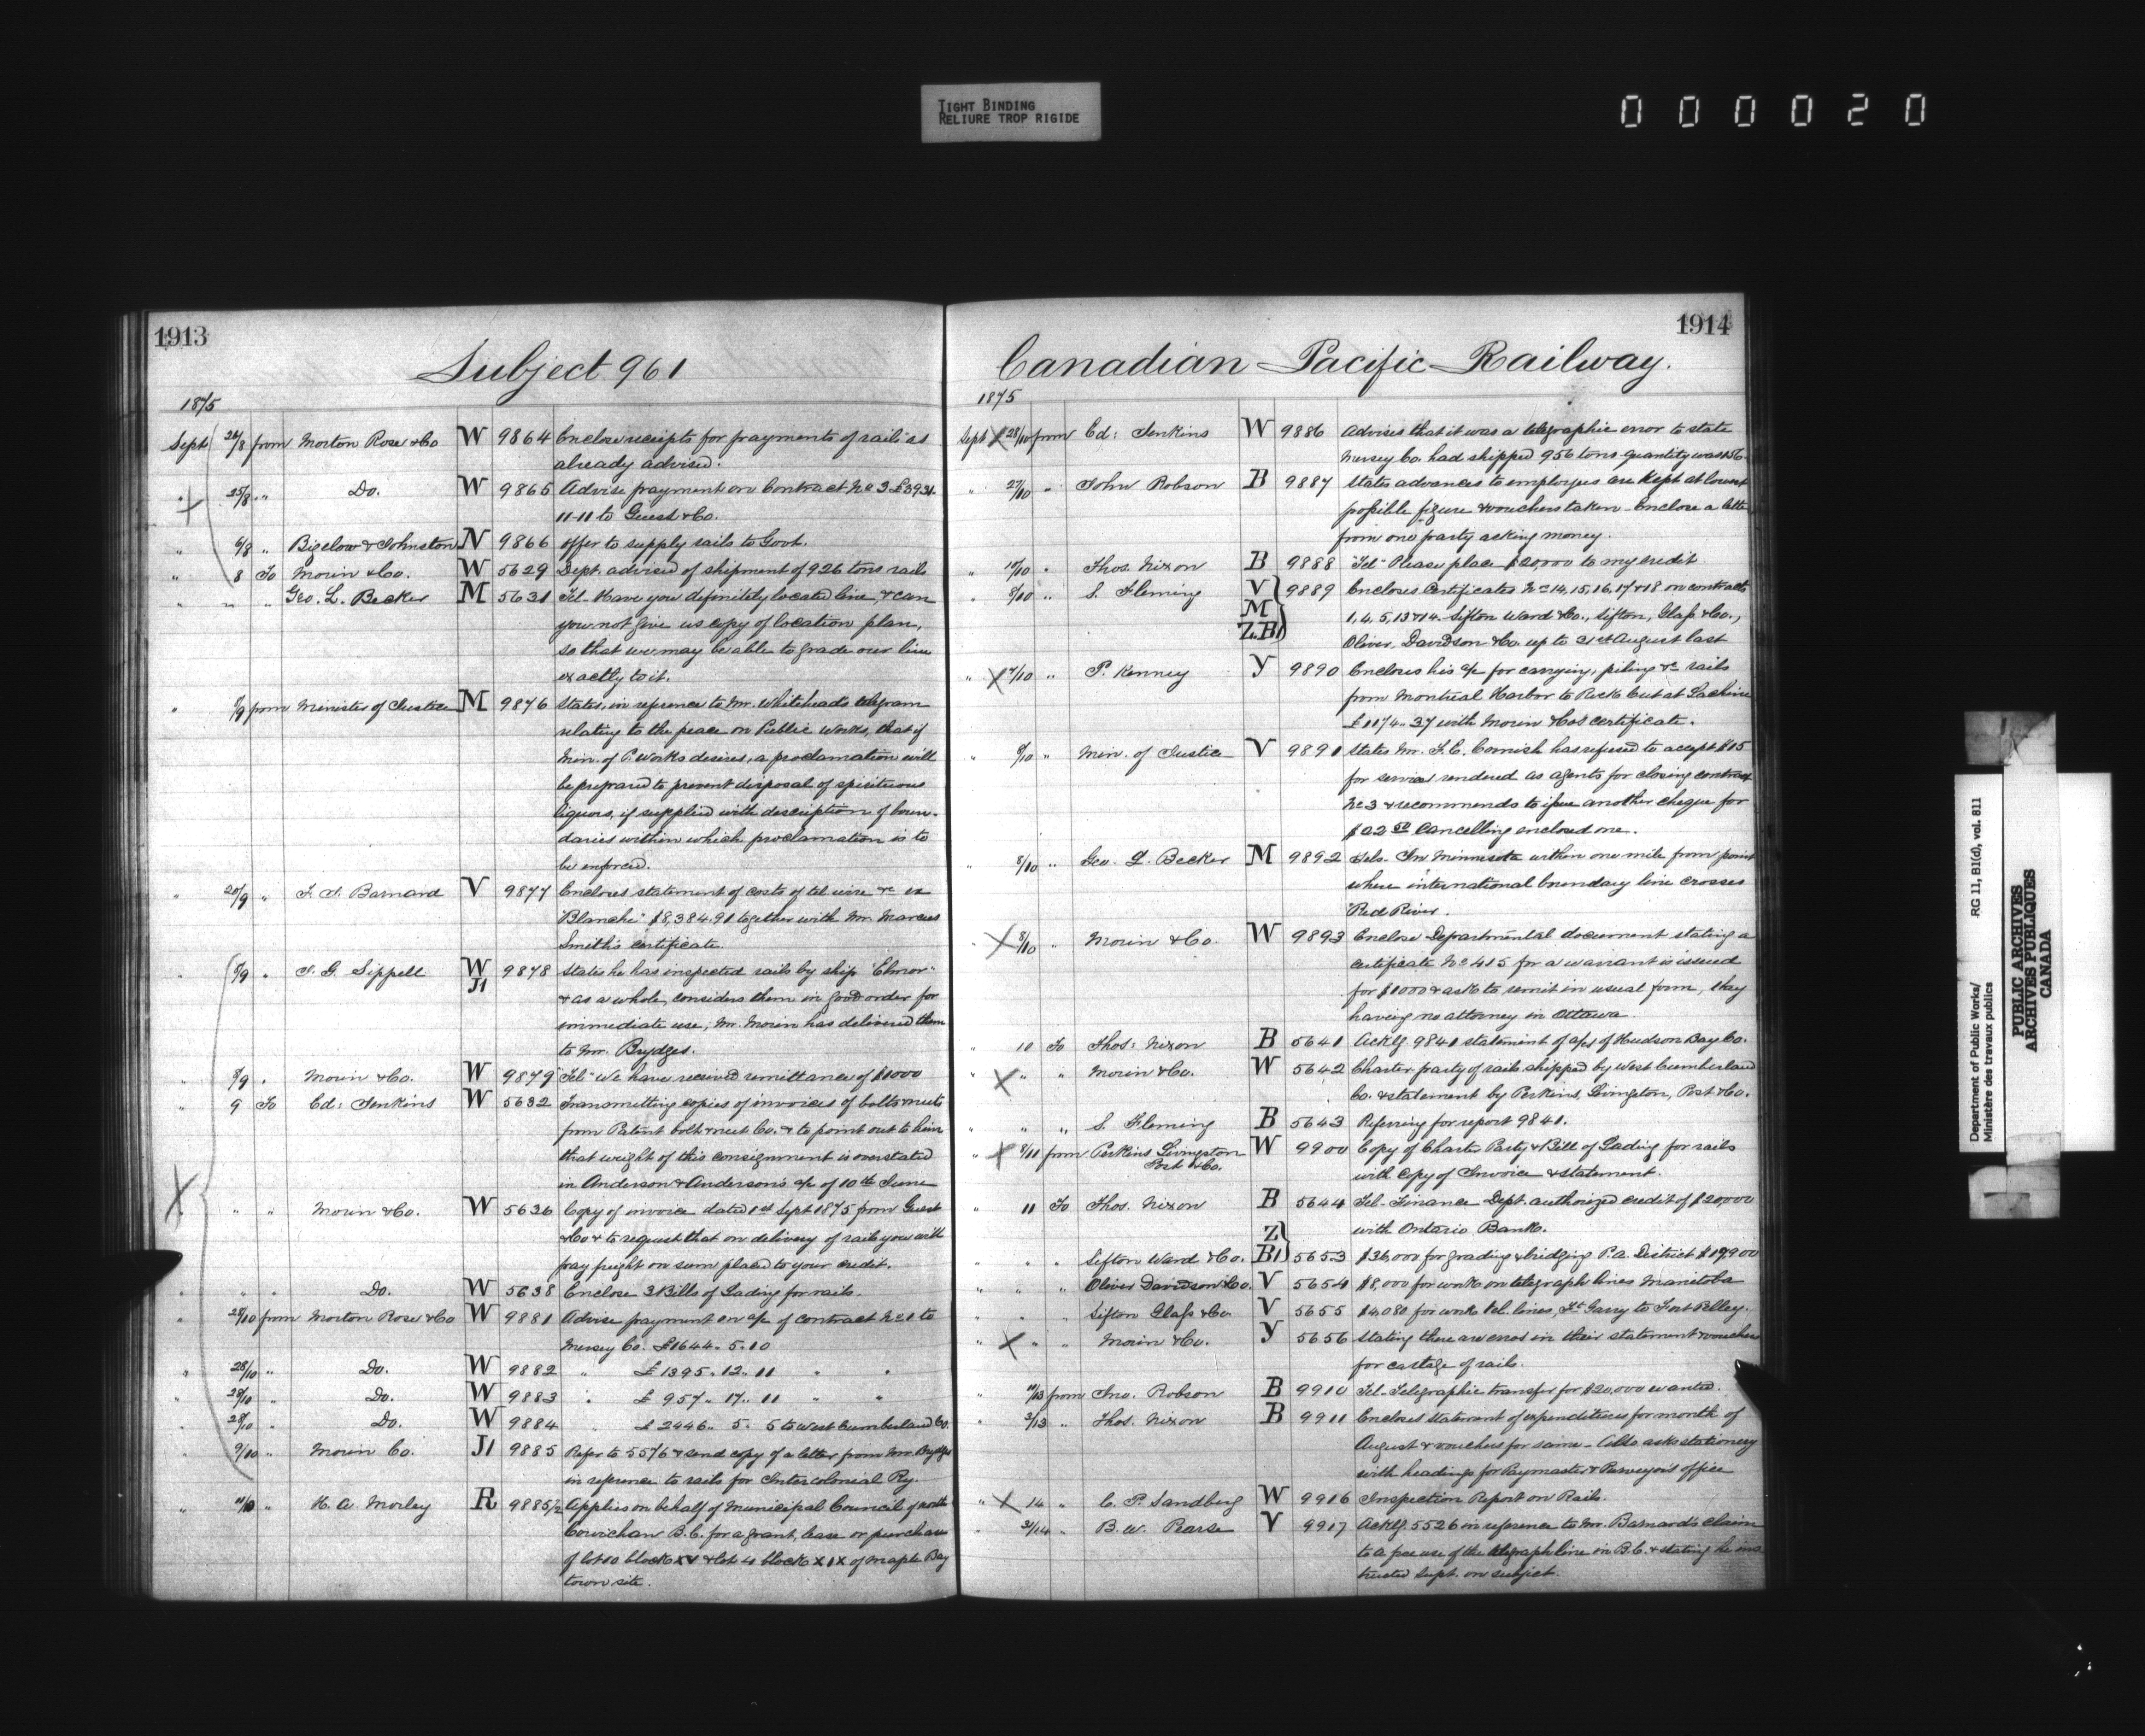 TIGHT BINDING
RELIURE TROP RIGIDE
000020
1913
Subject 961
1875
Sept 26/8 from Morton Rose & Co W 9864 Enclose receipts for payments of rails as
already advised.
" 25/8 " Do. W 9865 Advise payment on Contract No 3 £3931.
11-11 to Guest & Co.
" 6/8 " Bigelow & Johnston N 9866 offer to supply rails to Govt.
" 8 To Morin & Co. W 5629 Dept. advised of shipment of 926 tons rails
" " " Geo. L. Becker M 5631 Tel- Have you definitely located line, & can
you not give us copy of location plan,
so that we may be able to grade our line
exactly to it.
" 8/9 from Minister of Justice M 9876 States, in reference to Mr. Whitehead's telegram
relating to the peace on Public Works, that if
Min. of P. Works desires, a proclamation will
be prepared to prevent disposal of spirituous
liquors, if supplied with description of boun-
daries within which proclamation is to
be enforced.
" 20/9 " F. J. Barnard V 9877 Encloses statement of costs of tel wire &c ex
"Blanche" $8,384.91 together with Mr. Marcus
Smith's certificate.
" 8/9 " J. G. Sippell W J1 9878 States he has inspected rails by ship "Elmor"
& as a whole, considers them in good order for
immediate use; Mr. Morin has delivered them
to Mr. Brydges.
" 8/9 " Morin & Co. W 9879 Tel- We have received remittance of $1000
" 9 To Ed: Jenkins W 5632 Transmitting copies of invoices of bolts & nuts
from Patent bolt & nut Co. & to point out to him
that weight of this consignment is overstated
in Anderson & Anderson's a/c of 10th June
" " " Morin & Co. W 5636 Copy of invoice dated 1st Sept 1875 from Guest
& Co & to request that on delivery of rails you will
pay freight on sum placed to your credit.
" " " Do. W 5638 Enclose 3 Bills of Lading for rails.
" 28/10 from Morton Rose & Co W 9881 Advise payment on a/c of contract No 1 to
Mersey Co. £1644. 5. 10
" 28/10 " Do. W 9882 " £1395. 12. 11 " "
" 28/10 " Do. W 9883 " £ 957. 17. 11 " "
" 28/10 " Do. W 9884 " £ 2446. 5. 5 to West Cumberland Co.
" 9/10 " Morin Co. J1 9885 Refer to 5576 & send copy of a letter from Mr. Brydges
in reference to rails for Intercolonial Ry.
" 11/10 " H. A. Morley R 9885½ Applies on behalf of Municipal Council of north
Cowichan B.C. for a grant, lease or purchase
of lot 10 block XV & lot 4 block XIX of Maple Bay
town site.
1914
Canadian Pacific Railway.
1875
Sept 28/10 from Ed: Jenkins W 9886 Advises that it was a telegraphic error to state
Mersey Co. had shipped 956 tons quantity was 156.
" 27/10 " John Robson B 9887 States advances to employes are kept at lowest
possible figure & vouchers taken - Enclose a letter
from one party asking money.
" 10/10 " Thos. Nixon B 9888 "Tel- Please place $20000 to my credit
" 8/10 " S. Fleming V M Z.B1 9889 Encloses Certificates Nos 14, 15, 16, 17 & 18 on contracts
1, 4, 5, 13 & 14 - Sifton Ward & Co., Sifton, Glass & Co.,
Oliver, Davidson & Co. up to 31st August last
" 7/10 " P. Kenney Y 9890 Encloses his a/c for carrying, piling &c rails
from Montreal Harbor to Rock Cut at Lachine
£1174.. 37 with Morin & Co's certificate.
" 8/10 " Min. of Justice V 9891 States Mr. F. E. Cornish has refused to accept $15
for service rendered as agents for closing contract
No 3 & recommends to issue another cheque for
$22 50 Cancelling enclosed one.
" 8/10 " Geo. L. Becker M 9892 Tels- In Minnesota within one mile from point
where international boundary line crosses
Red River.
" 8/10 " Morin & Co. W 9893 Enclose Departmental document stating a
certificate No 415 for a warrant is issued
for $1000 & ask to remit in usual form, they
having no attorney in Ottawa
" 10 To Thos: Nixon B 5641 Ackl'g. 9841 statement of a/cs of Hudson Bay Co.
" " " Morin & Co. W 5642 Charter party of rails shipped by West Cumberland
Co. & statement by Perkins, Livingston, Post & Co.
" " " S. Fleming B 5643 Referring for report 9841.
" 8/11 from Perkins Livingston Post & Co. W 9900 Copy of Charter Party & Bill of Lading for rails
with Copy of Invoice & statement.
" 11 To Thos. Nixon B 5644 Tel- Finance Dept. authorized credit of $20,000
with Ontario Bank.
" " " Sifton Ward & Co. Z B1 5653 $36,000 for grading & bridging P.A. District $17900
" " " Oliver Davidson & Co. V 5654 $8,000 for work on telegraph lines Manitoba
" " " Sifton Glass & Co V 5655 $4080 for work tel. lines, Ft. Garry to Fort Pelley.
" " " Morin & Co. Y 5656 Stating there are errors in their statement & vouchers
for cartage of rails.
" 11/13 from Jno. Robson B 9910 Tel- Telegraphic transfer for $20,000 wanted.
" 3/13 " Thos. Nixon B 9911 Encloses Statement of expenditures for month of
August & vouchers for same - Also asks stationery
with headings for Paymaster & Purveyor's office
" 14 " C. P. Sandberg W 9916 Inspection Report on Rails.
" 31/14 " B. W. Pearse V 9917 Acklg. 5526 in reference to Mr. Barnard's claim
to a free use of the telegraph line in B.C. & stating he ins
tructed Supt. on subject.
Department of Public Works/
Ministère des travaux publics
RG 11, B1(d), vol. 811
PUBLIC ARCHIVES
ARCHIVES PUBLIQUES
CANADA